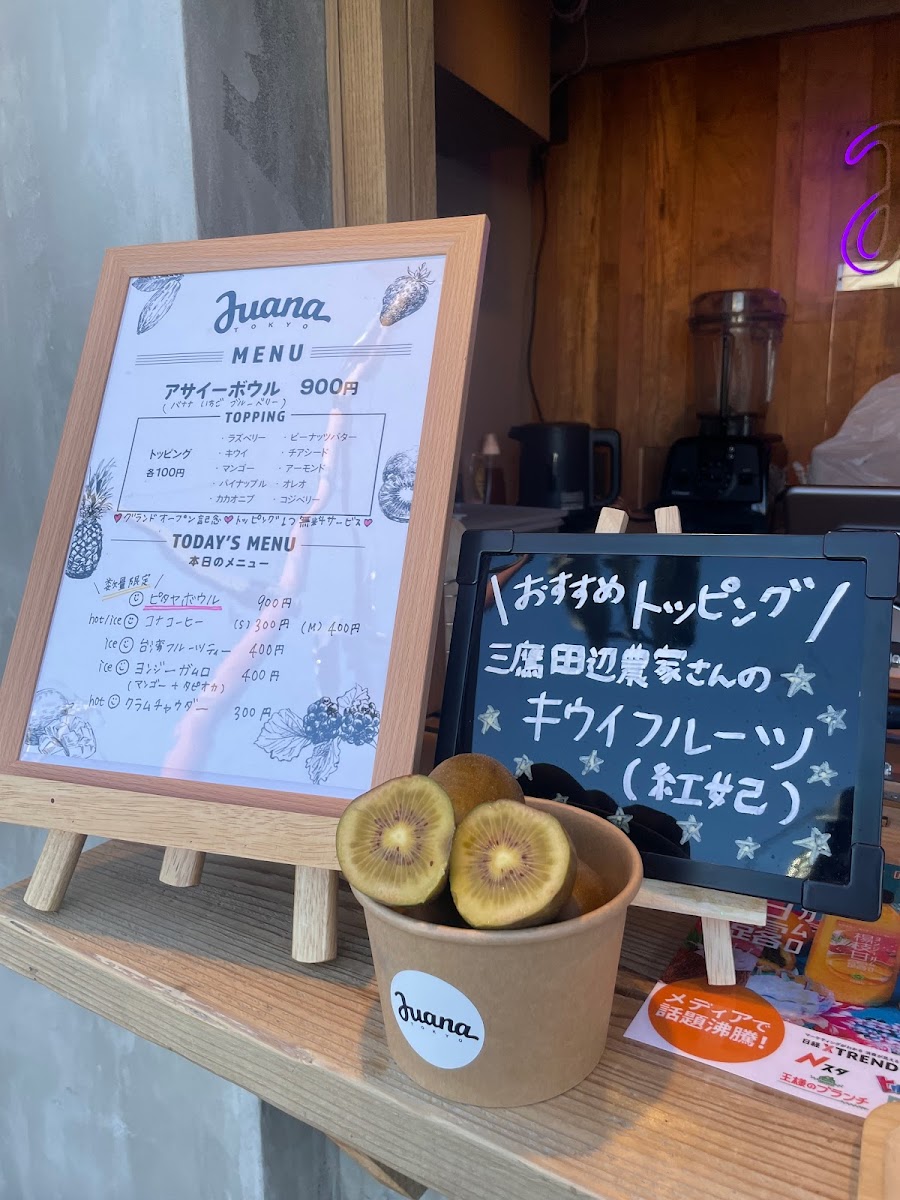 Juana
TOKYO
MENU
アサイーボウル 900円
(バナナ いちご ブルーベリー)
TOPPING
トッピング
各100円
・ラズベリー ・ピーナッツバター
・キウイ ・チアシード
・マンゴー ・アーモンド
・パイナップル ・オレオ
・カカオニブ ・コジベリー
♥グランドオープン記念♥トッピング1つ無料サービス♥
TODAY'S MENU
本日のメニュー
\数量限定/
Ⓒ ピタヤボウル 900円
hot/ice Ⓒ コナコーヒー (S) 300円 (M) 400円
ice Ⓒ 台湾フルーツティー 400円
ice Ⓒ ヨンジーガムロ 400円
(マンゴー + タピオカ)
hot Ⓒ クラムチャウダー 300円
\おすすめトッピング/
三鷹田辺農家さんの
キウイフルーツ
(紅妃)
Juana
TOKYO
メディアで
話題沸騰!
日経 XTREND
Nスタ
王様のブランチ